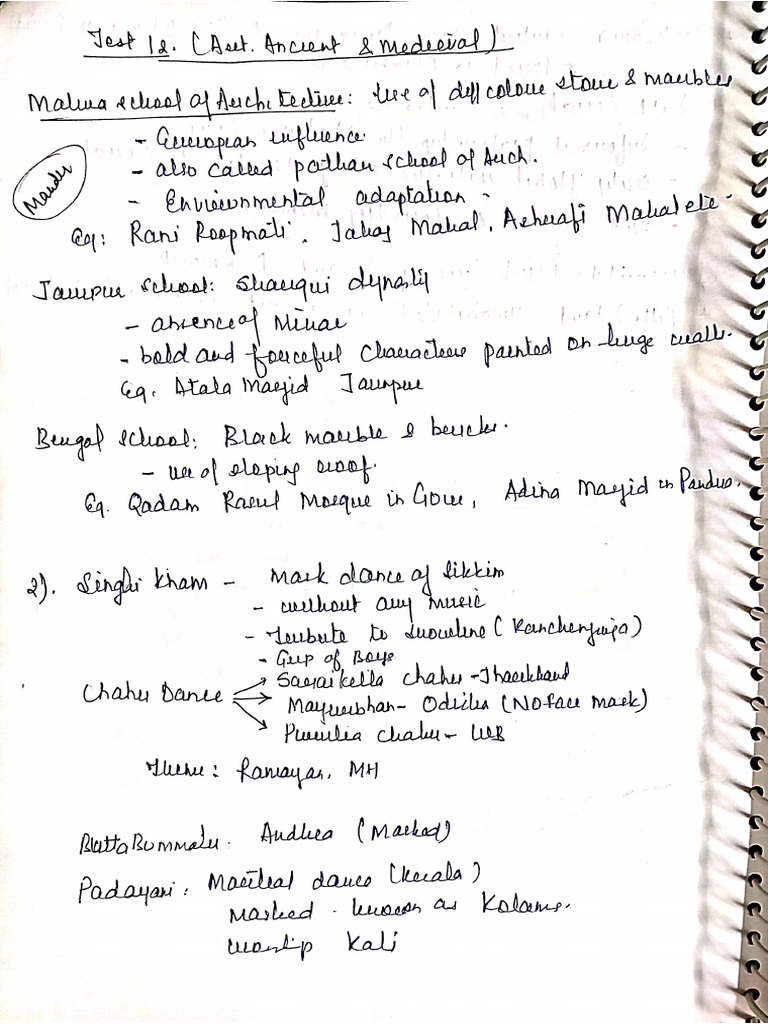 Test 12. (Art. Ancient & Medieval)
Malwa school of Architecture: Use of diff colour stone & marbles
- European influence.
- also called pathan school of Arch.
- Environmental adaptation.
Mandu
Eg: Rani Roopmati, Jahaj Mahal, Ashrafi Mahal etc.
Jaunpur school: Sharqui dynasty
- absence of Minar
- bold and forceful characters painted on huge walls.
Eg. Atala Masjid Jaunpur
Bengal school: Black marble & bricks.
- use of sloping roof.
Eg. Qadam Rasul Mosque in Gour, Adina Masjid in Pandua.
2). Singhi Kham - Mask dance of Sikkim
- without any music
- Tribute to snowline (Kanchenjunga)
- Grp of Boys
Chahu Dance → Saraikella chahu - Jharkhand
→ Mayurbhan - Odisha (No face mask)
→ Purulia chahu - WB
Theme: Ramayan, MH
Butta Bommalu: Andhra (Masked)
Padayani: Martial dance (Kerala)
Masked. known as Kolams.
worship Kali